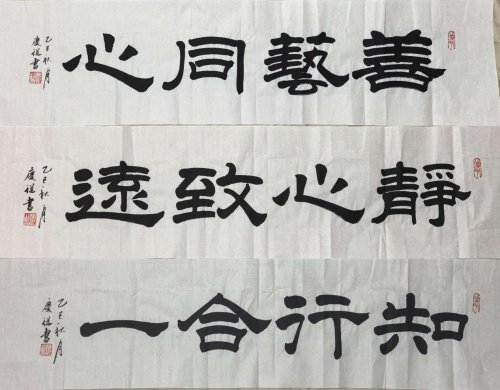 善藝同心
乙巳秋月
慶祥書
靜心致遠
乙巳秋月
慶祥書
知行合一
乙巳秋月
慶祥書